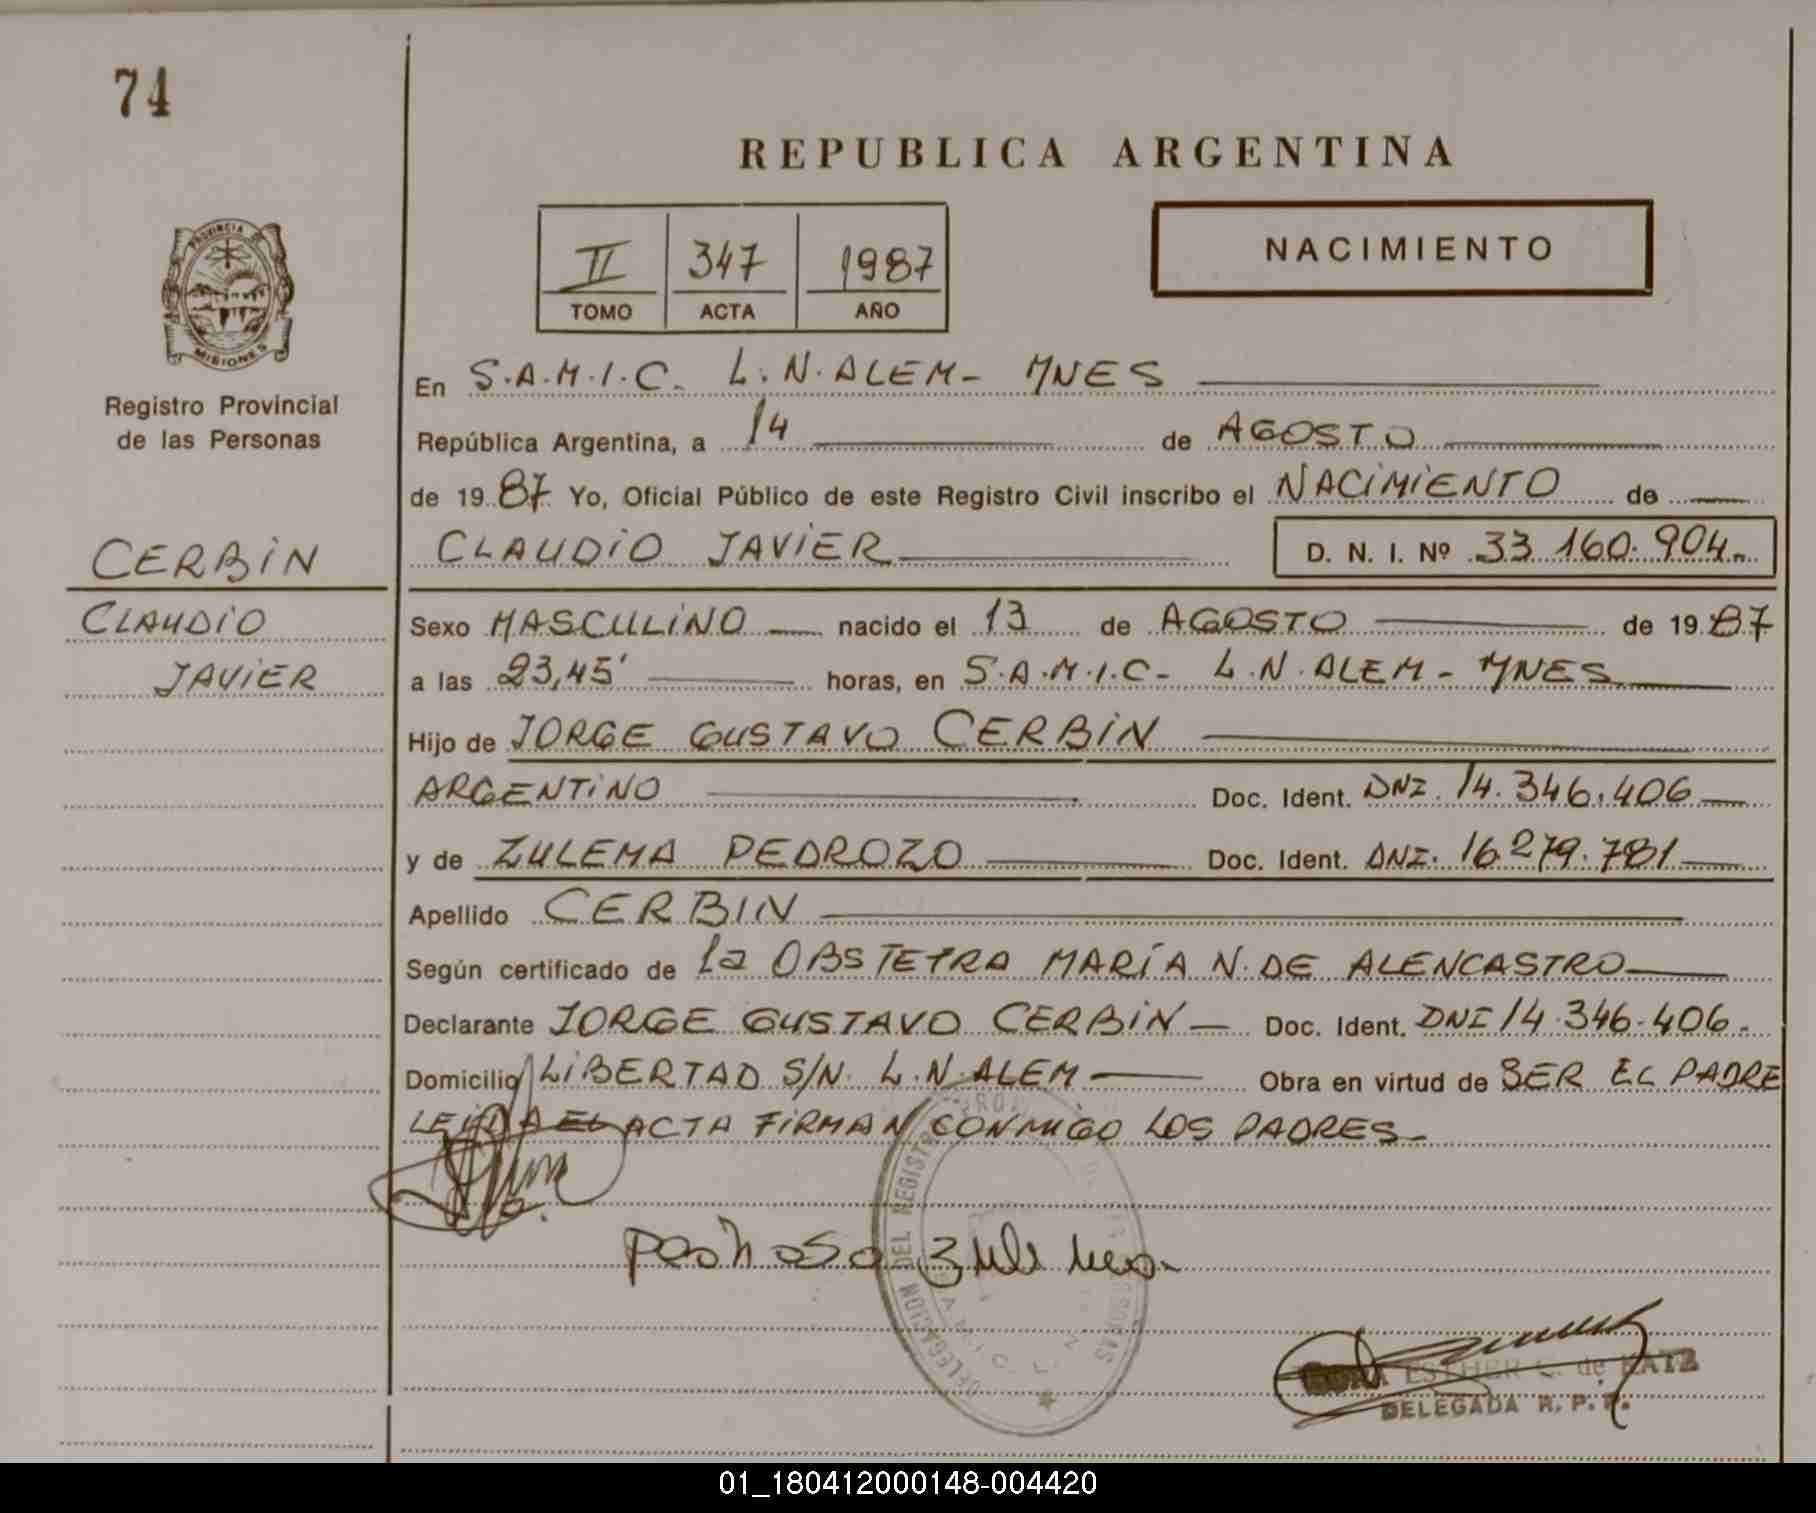 74
REPUBLICA ARGENTINA
II 347 1987
TOMO ACTA AÑO
NACIMIENTO
PROVINCIA DE
MISIONES
Registro Provincial
de las Personas
CERBIN
CLAUDIO
JAVIER
En S.A.M.I.C. L.N. ALEM - MNES
República Argentina, a 14 de AGOSTO
de 1987 Yo, Oficial Público de este Registro Civil inscribo el NACIMIENTO de
CLAUDIO JAVIER D. N. I. Nº 33.160.904.-
Sexo MASCULINO nacido el 13 de AGOSTO de 1987
a las 23,45' horas, en S.A.M.I.C- L.N. ALEM - MNES
Hijo de JORGE GUSTAVO CERBIN
ARGENTINO Doc. Ident. DNI. 14.346.406
y de ZULEMA PEDROZO Doc. Ident. DNI. 16.279.781
Apellido CERBIN
Según certificado de la OBSTETRA MARÍA N. DE ALENCASTRO
Declarante JORGE GUSTAVO CERBIN Doc. Ident. DNI 14.346.406.
Domicilio LIBERTAD S/N. L.N. ALEM Obra en virtud de SER EL PADRE
LEIDA EL ACTA FIRMAN CONMIGO LOS PADRES.
DELEGACION DEL REGISTRO
ESTHER C. de KATZ
DELEGADA R. P. P.
01_180412000148-004420